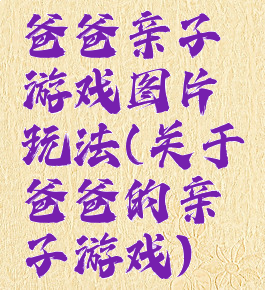 爸爸亲子
游戏图片
玩法(关于
爸爸的亲
子游戏)